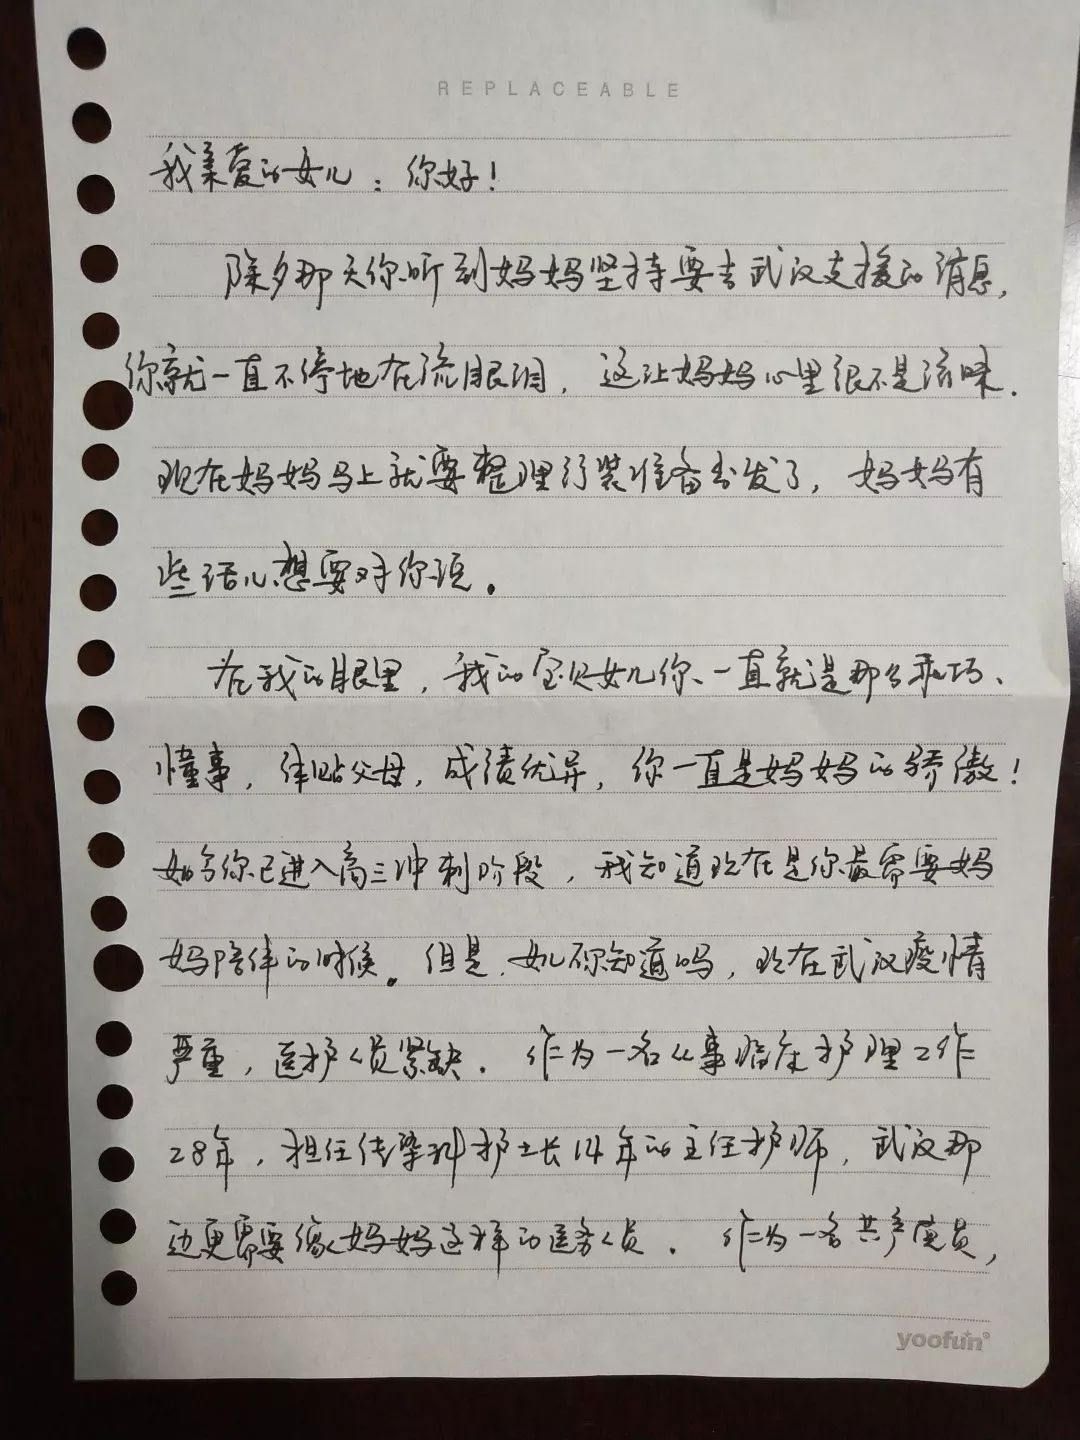 REPLACEABLE
我亲爱的女儿：你好！
除夕那天你听到妈妈坚持要去武汉支援的消息，
你就一直不停地在流眼泪，这让妈妈心里很不是滋味．
现在妈妈马上就要整理行装准备出发了，妈妈有
些话儿想要对你说。
在我的眼里，我的宝贝女儿你一直就是那么乖巧、
懂事，体贴父母，成绩优异，你一直是妈妈的骄傲！
如今你已进入高三冲刺阶段，我知道现在是你最需要妈
妈陪伴的时候。但是，女儿你知道吗，现在武汉疫情
严重，医护人员紧缺．作为一名从事临床护理工作
28年，担任传染科护士长14年的主任护师，武汉那
边更需要像妈妈这样的医务人员．作为一名共产党员，
yoofun